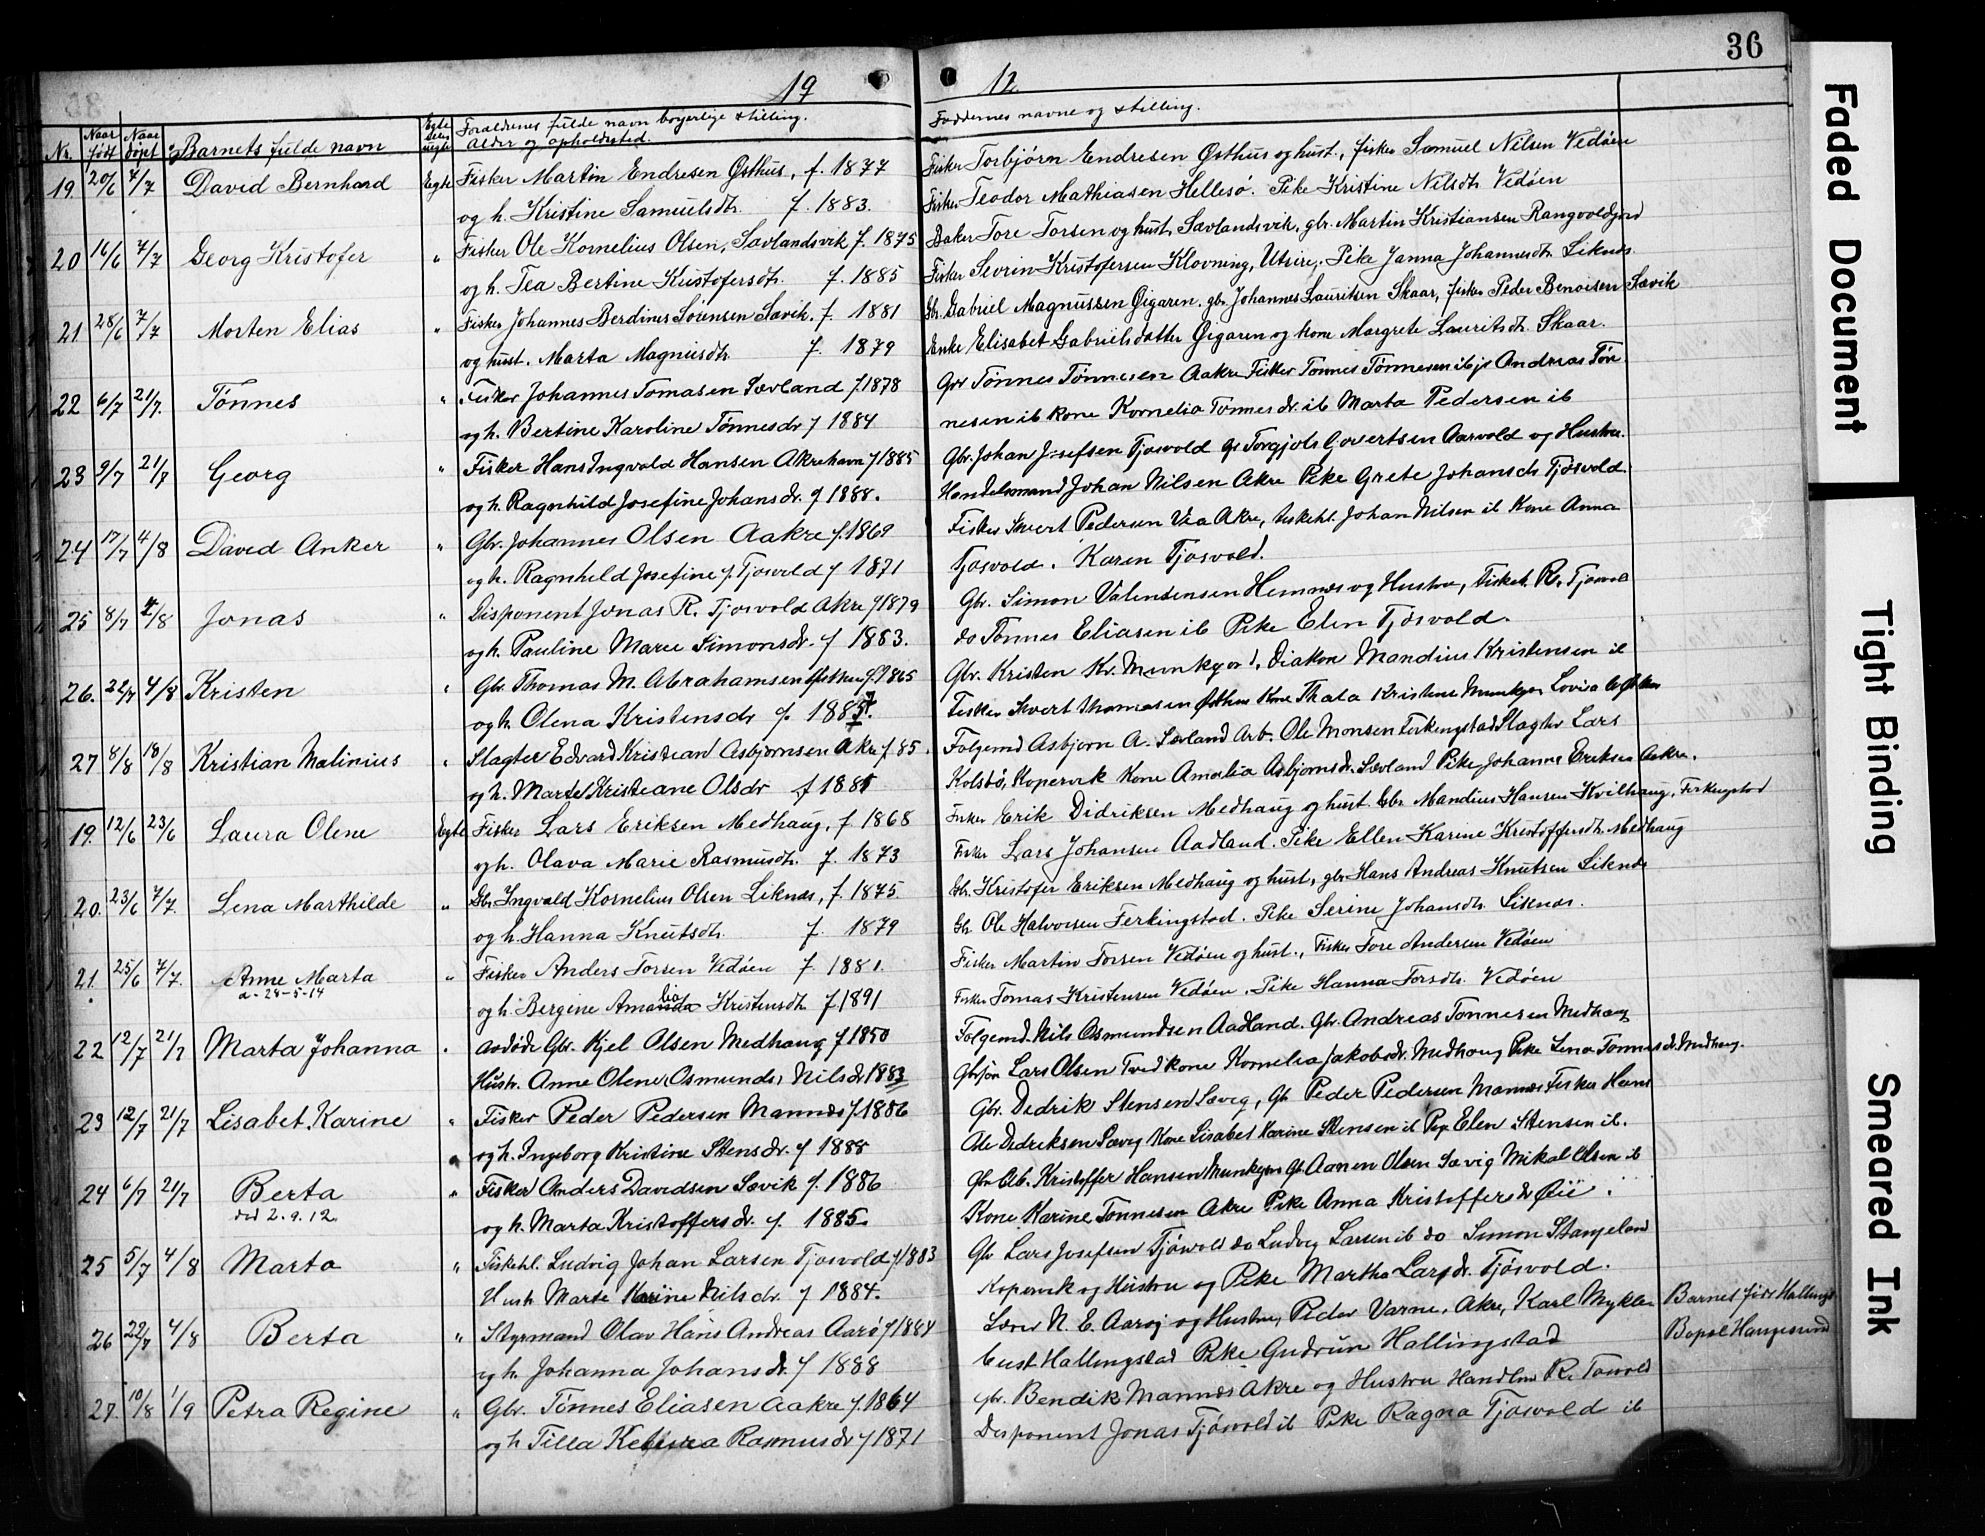 36
19 12
Nr. Naar født Naar døpt Barnets fulde navn Egte Forældrenes fulde navn borgerlige stilling. Faddernes navne og stilling.
alder og opholdssted.
19. 20/6 7/7 David Bernhard Egte Fisker Martin Endresen Østhus, f. 1877 Fisker Torbjørn Endresen Østhus og hust., fisker Samuel Nilsen Vedøen
og h. Kristine Samuelsdtr. f. 1883. Fisker Teodor Mathiasen Hellesø. Pike Kristine Nilsdtr. Vedøen
20 16/6 7/7 Georg Kristofer " Fisker Ole Kornelius Olsen, Sævlandsvik f. 1875 Baker Tore Torsen og hust. Sævlandsvik, gbr. Martin Kristiansen
og h. Tea Bertine Kristofersdtr. f. 1885 Fisker Sevrin Kristofersen Klovning, Utsire, Pike Janna Johannesdtr. Liknes
21 28/6 7/7 Morten Elias " Fisker Johannes Berdines Sørensen Sævik, f. 1881 Gbr. Gabriel Magnussen Øigaren, gbr. Johannes Lauritsen Skaar, fisker Peder Benoisen Sævik
og hust. Marta Magnusdtr. f. 1879 Enke Elisabet Gabrielsdatter Øigaren og kone Margrete Lauritsdtr. Skaar.
22 6/7 21/7. Tønnes " Fisker Johannes Tomasen Sævland f. 1878 Gbr Tønnes Tønnesen Aakre Fisker Tønnes Tønnesen ib Andreas Tøn
og h. Bertine Karoline Tønnesdr f 1884 nesen ib Kone Kornelia Tønnesdr. ib Marta Pedersen ib
23 9/7 21/7 Georg " Fisker Hans Ingvald Hansen Akrehavn f 1885 Gbr. Johan Josefsen Tjosvold Govertsen Aarvold og Hustru.
og h. Ragnhild Josefine Johansdr. f 1888. Handelsmand Johan Nilsen Akre Pike Grete Johansdr Tjøsvold.
24 17/7 4/8 David Anker " Gbr. Johannes Olsen Aakre f. 1869 Fisker Sivert Pedersen Vea Akre, fiskehl. Johan Nilsen ib Kone Anna
og h. Ragnhild Josefine J. Tjosvold f 1871 Tjøsvold. Karen Tjøsvold.
25 8/7 4/8 Jonas " Disponent Jonas R. Tjøsvold Akre f 1879 Gbr. Simon Valentensen Hemnes og Hustru, Fiskeh. R. Tjøsvold
og h. Pauline Marie Simonsdr. f 1883. do Tønnes Eliasen ib Pike Elen Tjøsvold.
26. 22/7 4/8 Kristen " Gbr. Thomas M. Abrahamsen Østhus f. 1865 Gbr. Kristen Kr. Munkejord, Diakon Mandius Kristensen ib
og h. Olena Kristensdr f. Fisker Sivert Thomasen Østhus Kone Thala Kristine Munkejor Lovisa Østhus
27 8/8 18/8 Kristian Malinius " Slagter Edvard Kristian Asbjørnsen Akre f. 85. Folgemd Asbjørn A. Sævland Arb. Ole Monsen Ferkingstad Slagter Lars
og h. Marte Kristiane Olsdr f 1881 Kolstø, Kopervik Kone Amalia Asbjørnsdr. Sævland Pike Johanne Eriksen Aakre.
19. 12/6 23/6 Laura Olene Egte Fisker Lars Eriksen Medhaug, f. 1868 Fisker Erik Didriksen Medhaug og hust. Gbr Mandius Hansen Kvilhaug, Ferkingstad
og h. Olava Marie Rasmusdtr. f. 1873 Fisker Lars Johansen Aadland. Pike Ellen Karine Kristoffersdtr. Medhaug
20. 23/6 7/7. Lena Marthilde " Gbr Ingvald Kornelius Olsen Liknes, f. 1875. Gbr. Kristofer Eriksen Medhaug og hust., gbr. Hans Andreas Knutsen Liknes
og h. Hanna Knutsdtr. f. 1879 Gbr Ole Halvorsen Ferkingstad. Pike Serine Johansdtr. Liknes.
21. 25/6 7/7. Anne Marta " Fisker Anders Torsen Vedøen f. 1881. Fisker Martin Torsen Vedøen og hust., Fisker Tore Andersen Vedøen
d. 28-5-14
og h. Bergine Amanda lia Kristensdtr. f. 1891 Fisker Tomas Kristensen Vedøen. Pike Hanna Torsdtr. Vedøen
22 12/7 21/7 Marta Johanna " avdøde Gbr. Kjel Olsen Medhaug f 1850 Folgemd. Nils Osmundsen Aadland. Gbr. Andreas Tønnesen Medhaug
Hustr. Anne Olene Osmunda Nilsdr 1883 Gbrsøn Lars Olsen Tved kone Kornelia Jakobsdr. Medhaug Pike Lena Tønnesdr. Medhaug.
23 12/7 21/7 Lisabet Karine " Fisker Peder Pedersen Mannes f. 1886 Gbr. Didrik Stensen Sævig, Gbr Peder Pedersen Mannes Fisker Hans
og h. Ingeborg Kristine Stensdr. f 1888 Ole Didriksen Sævig Kone Lisabet Karine Stensen ib Pige Elen Stensen ib.
24 6/7 21/7 Berta " Fisker Anders Davidsen Sævik f. 1886 Kristoffer Hansen Munkejor Gb. Aanen Olsen Sævig Mikal Olsen ib
død 2. 9. 12.
og h. Marta Kristoffersdr. f. 1885. Kone Karine Tønnesen Akre Pike Anna Kristoffersdr
25 5/7 4/8 Marta " Fiskehl. Ludvig Johan Larsen Tjøsvold f 1883 Gbr Lars Josefsen Tjøsvold do Ludvig Larsen ib do Simon Stangeland
Hustr. Marte Karine Nilsdr. f 1884. Kopervik og Hustru og Pike Martha Larsdr. Tjøsvold.
26 22/7 4/8 Berta " Styrmand Olav Hans Andreas Aarø f 1884 Lærer N. E. Aarøj og Hustru, Peder Varne, Akre, Karl Mykle Barnet født Hallings
og h. Johanna Johansdr. f 1888 bust Hallingstad Pike Gudrun Hallingstad Bopæl Haugesund
27. 10/8 1/9 Petra Regine " Gbr. Tønnes Eliasen Aakre f. 1864 Gbr. Bendik Mannes Akre og Hustru Handlm R. Tøsvold
og h Tilla Rasmusdr f 1871 Disponent Jonas Tjøsvold ib Pike Ragna Tjøsvold ib
Faded Document
Tight Binding
Smeared Ink